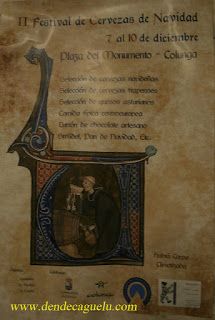 II Festival de Cervezas de Navidad
7 al 10 de diciembre
Plaza del Monumento - Colunga
Selección de cervezas navideñas
Selección de cervezas trapenses
Selección de quesos asturianos
Comida típica centroeuropea
Turrón de chocolate artesano
Strüdel, Pan de Navidad, Etc.
www.dendecaguelu.com